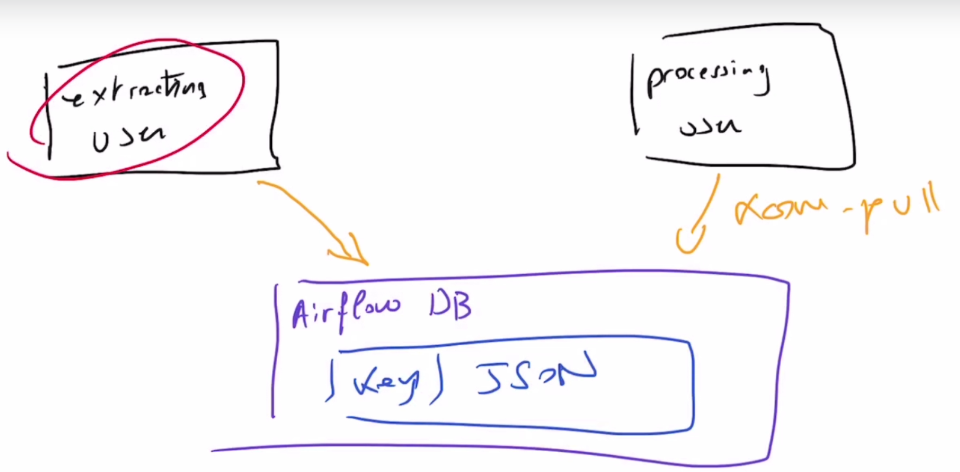 extracting
user
processing
user
xcom-pull
Airflow DB
key JSON